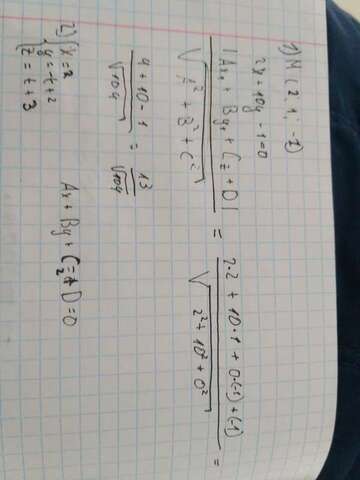 1) M(2; 1; -1)
2x + 10y - 1 = 0
|Ax₁ + By₁ + Cz + D| / √(A² + B² + C²) = (2·2 + 10·1 + 0·(-1) + (-1)) / √(2² + 10² + 0²) =
(4 + 10 - 1) / √104 = 13 / √104
2) { x = 2
y = -t + 2
z = t + 3
Ax + By + Cz + D = 0